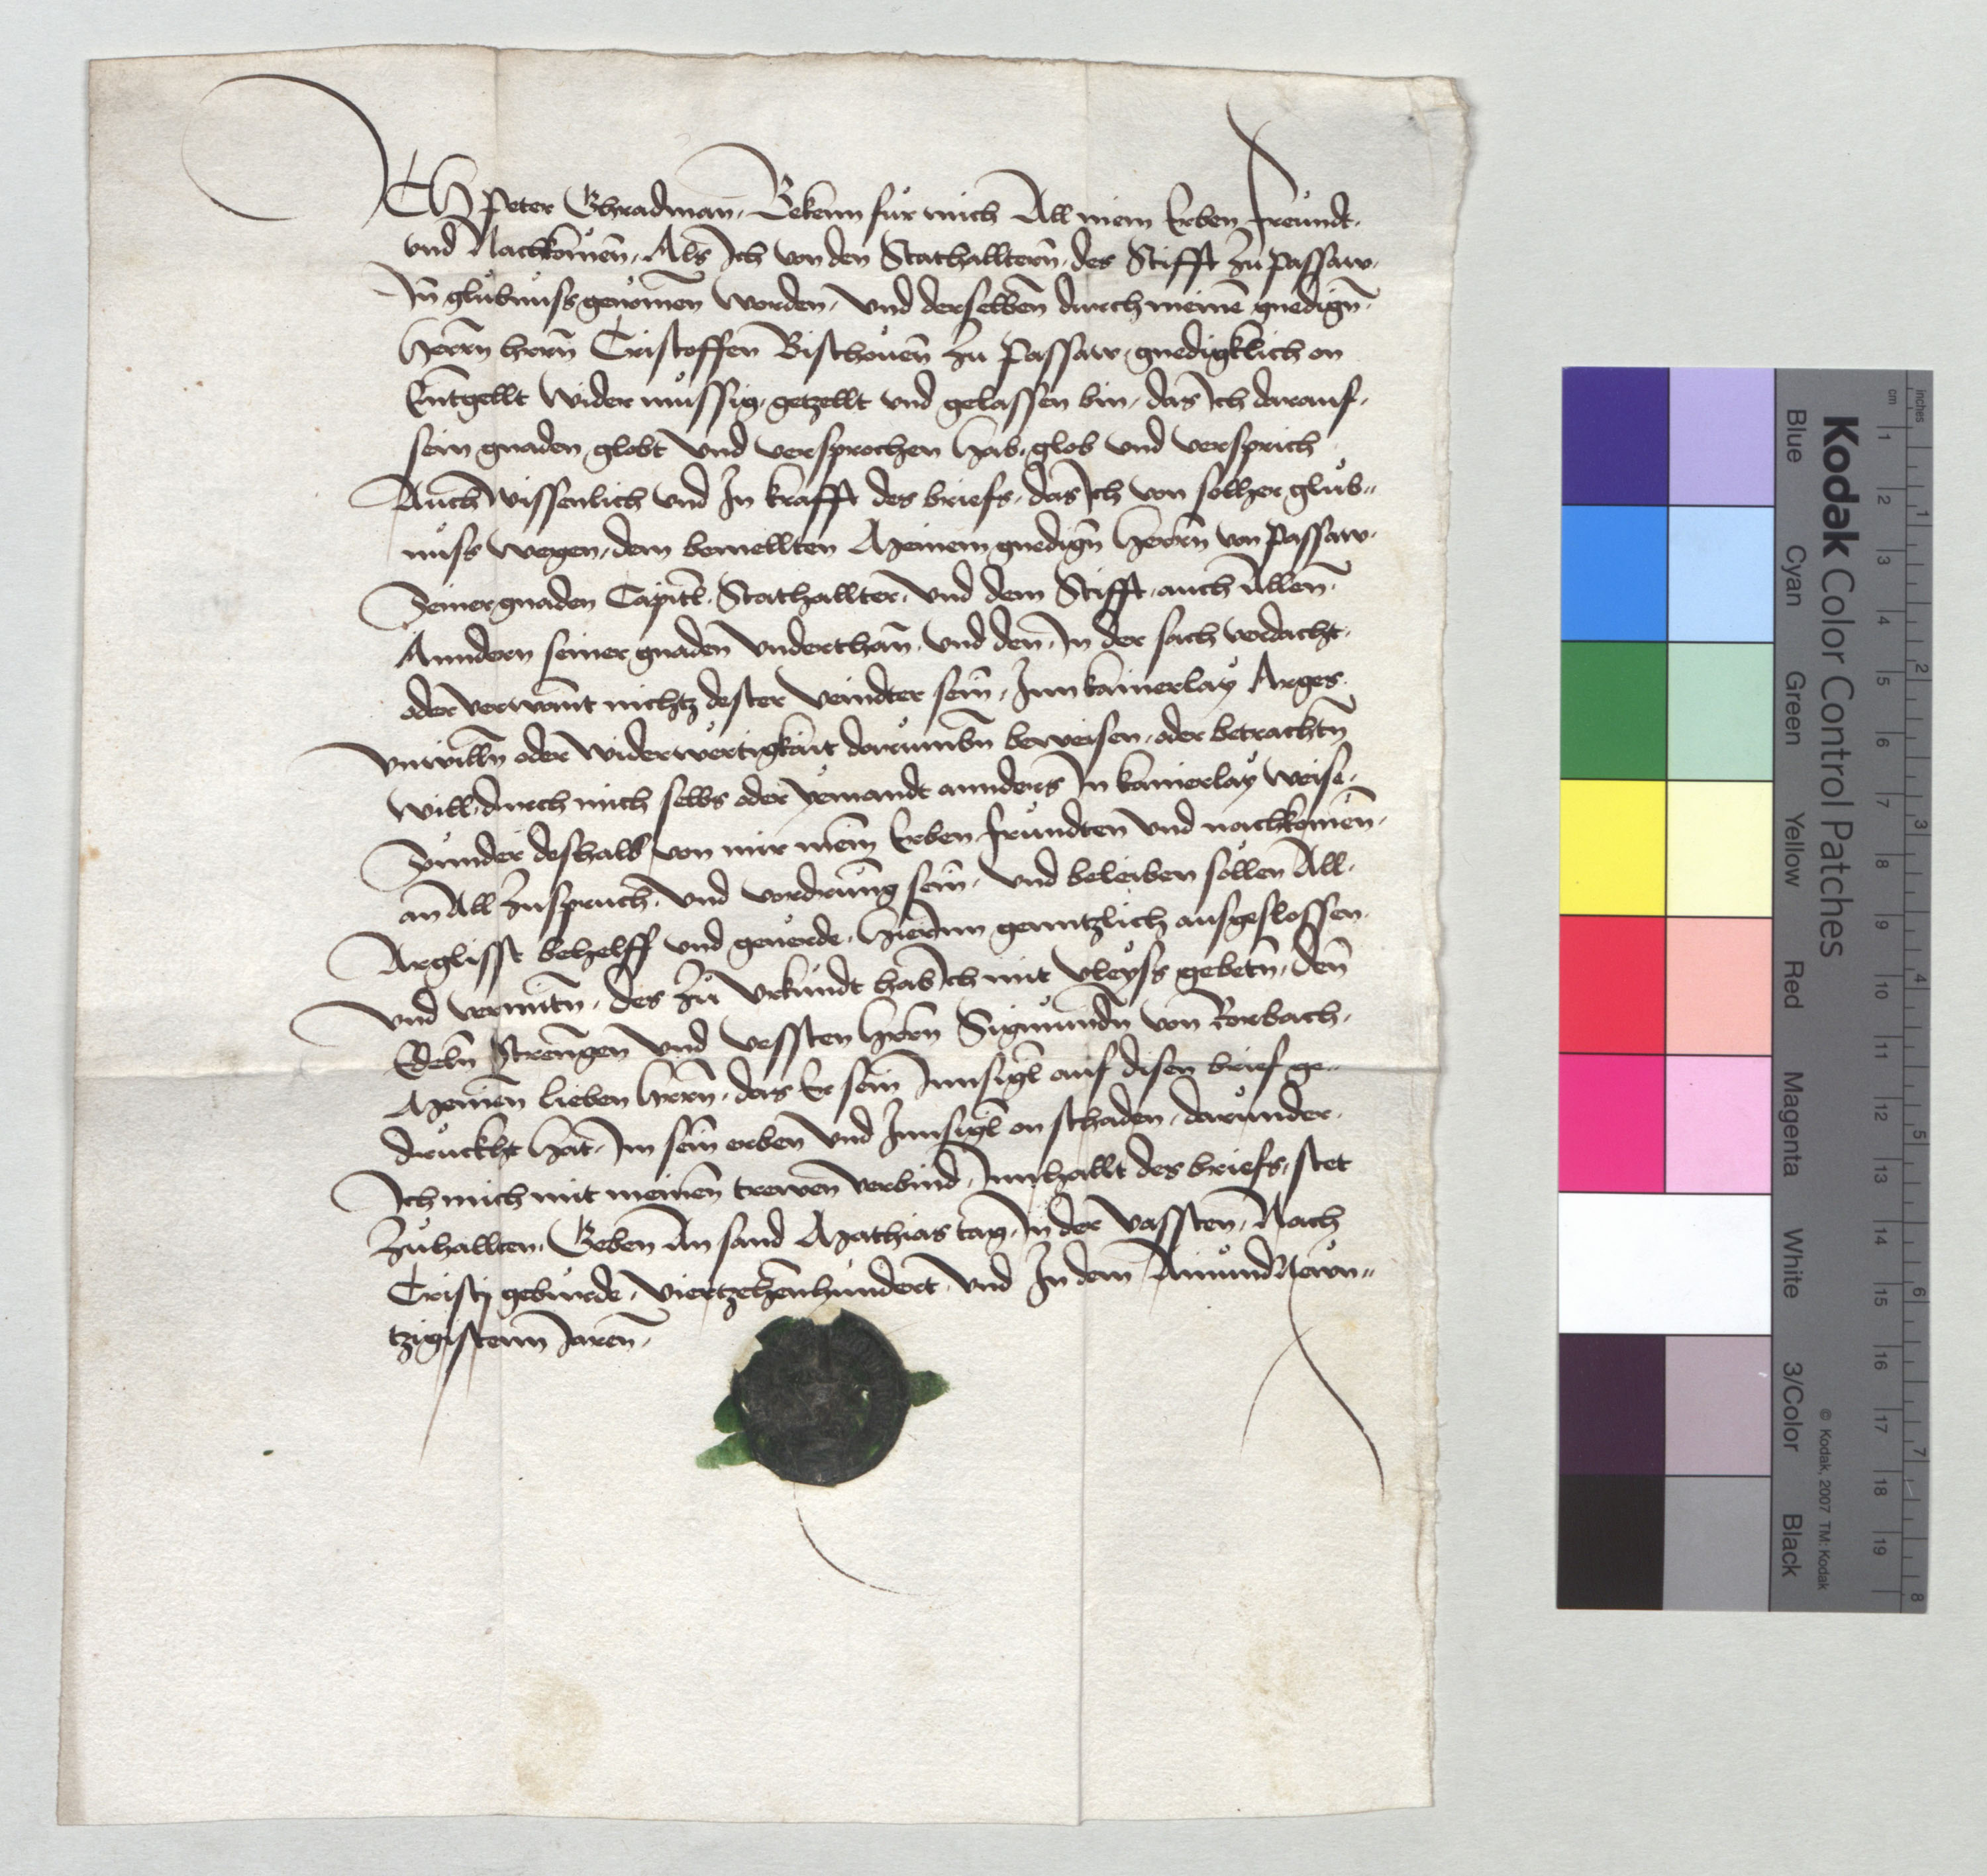 ICH Peter Ghradman, Bekenn für mich All mein Erben freündt,
und Nachkomen, Als Ich von den Stathalltern, des Stifft zu Passaw,
In glubnuss genomen worden, Und derselben durch meinen gnedign,
Herrn hern Cristoffen Bischouen zu Passaw, gnedigklich on
Enntgellt wider müssig, getzellt und gelassen bin, das Ich darauf,
sein gnaden globt Und versprochen hab, glob und versprich
Auch wissenlich und In krafft des briefs, das Ich von solher glub„
nuss wegen, dem bemellten Meinem gnedign Herrn von Passaw,
Seiner gnaden Capitl, Stathallter, Und dem Stifft, auch Allen,
Anndern seiner gnaden Underthan, und den, In der sach verdacht,
oder verwant nichtz dester veindter sein, Inn kainerlay Arges,
Unwilln oder widerwertigkait darumbn beweisen, oder betrachtn
will, durch mich selbs oder yemandt annders In kainerlay weise,
Sunder deshalb von mir mein Erben fründten und nachkomen,
an All Zuspruch, und vordrung sein, und beleiben söllen All,
Arglisst behelff und geuerde, hierinn genntzlich ausgeslossen,
Und vermitn, des zu Urkundt hab Ich mit vleyss gebetn, den
Edeln Strengen und vessten Herrn Sigmundn von Rorbach,
Meinen lieben Herrn, das Er sein Innsigl auf disen brief ge„
druckht hat, Im sein erben und Innsigl on schaden, darunder,
Ich mich mit meinen trewen verbind, Innhallt des briefs, stet
Zuhallten, Geben An sand Mathias tag, In der vassten, Nach
Cristj gebürde, viertzehenhundert, und In dem AinundNewn„
tzigistenn Jaren,
Kodak Color Control Patches
Blue Cyan Green Yellow Red Magenta White 3/Color Black
© Kodak, 2007 TM: Kodak
inches 1 2 3 4 5 6 7 8
cm 1 2 3 4 5 6 7 8 9 10 11 12 13 14 15 16 17 18 19